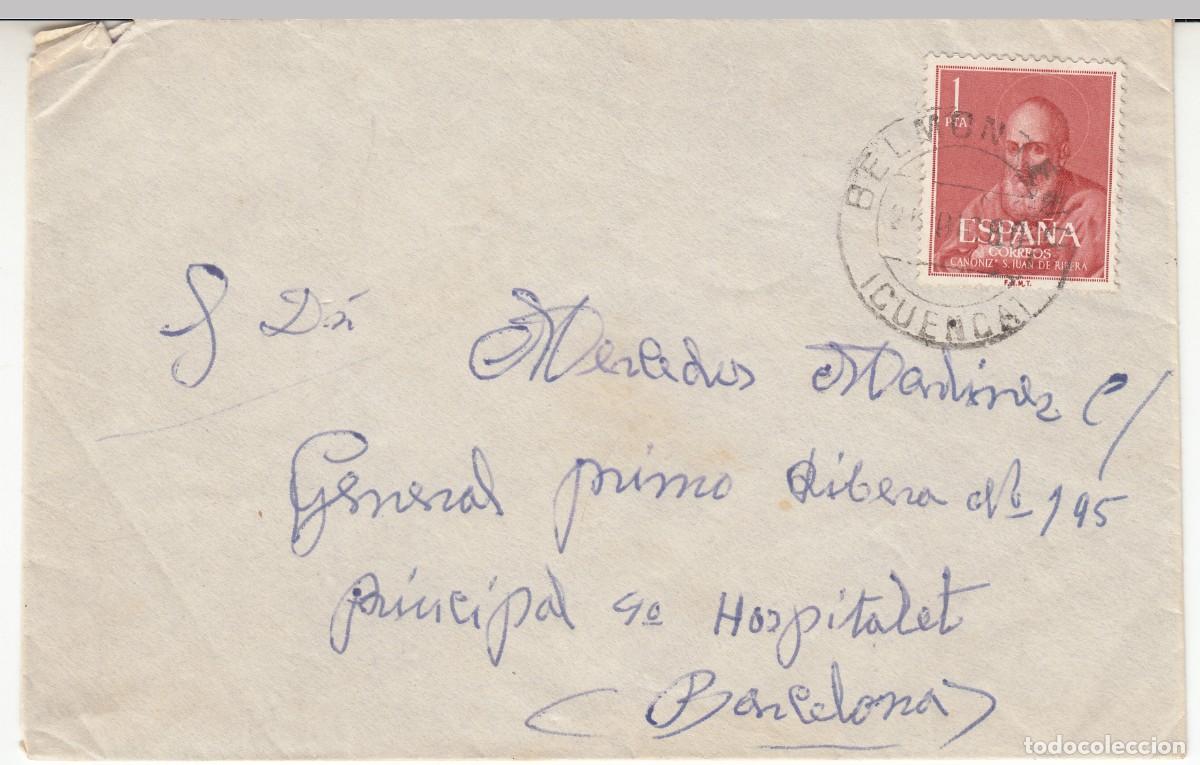 1
PTA
ESPAÑA
CORREOS
CANONIZ.ᴺ S. JUAN DE RIBERA
F.N.M.T.
BELMONTE
(CUENCA)
S Dñ Mercedes Martinez C/
General primo Ribera Nº 195
principal 4º Hospitalet
(Barcelona)
todocoleccion